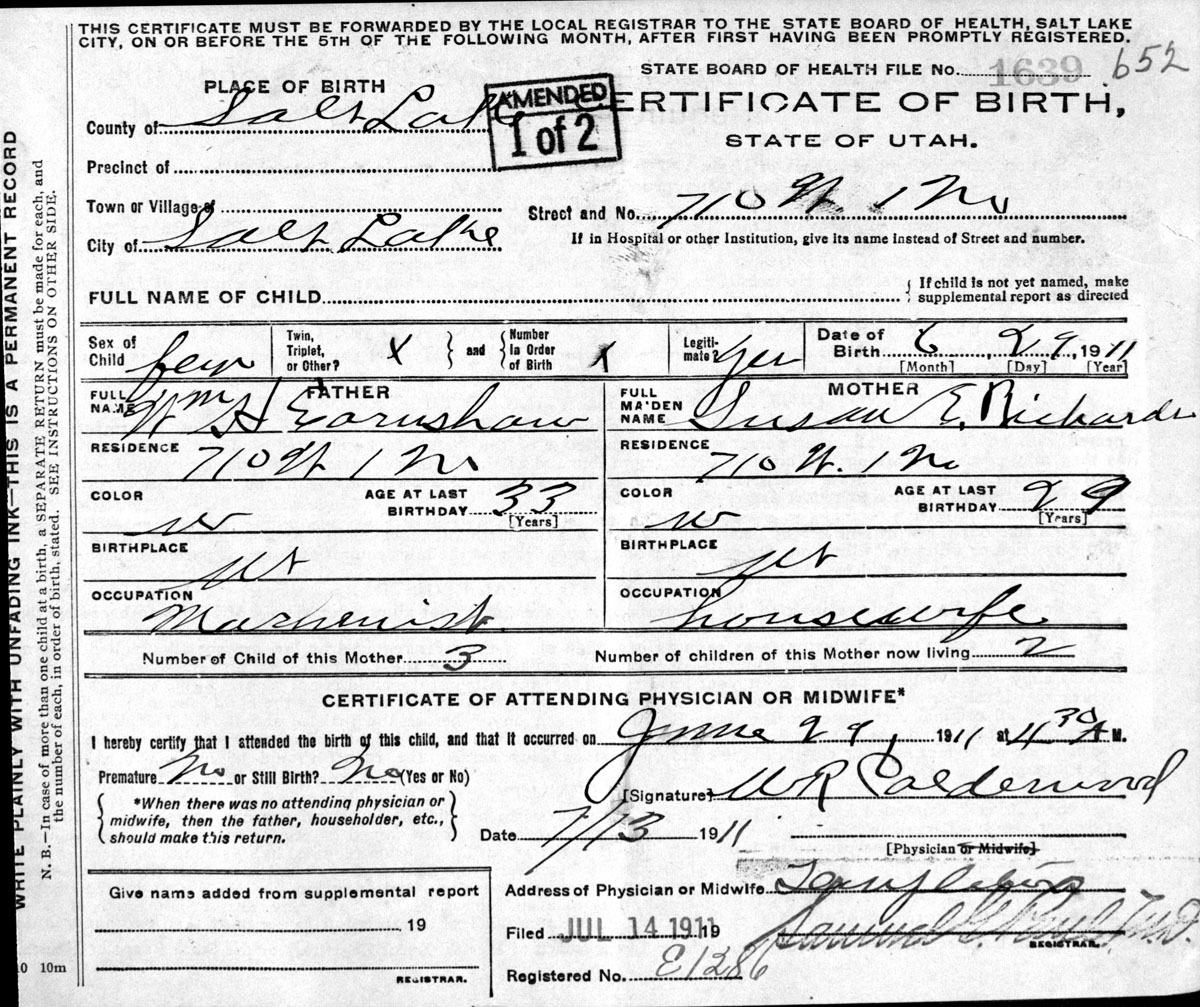 THIS CERTIFICATE MUST BE FORWARDED BY THE LOCAL REGISTRAR TO THE STATE BOARD OF HEALTH, SALT LAKE
CITY, ON OR BEFORE THE 5TH OF THE FOLLOWING MONTH, AFTER FIRST HAVING BEEN PROMPTLY REGISTERED.
STATE BOARD OF HEALTH FILE No. 1639 652
PLACE OF BIRTH
AMENDED
1 of 2
CERTIFICATE OF BIRTH,
STATE OF UTAH.
County of Salt Lake
Precinct of
Town or Village of
Street and No. 710 W. 1 No
City of Salt Lake
If in Hospital or other Institution, give its name instead of Street and number.
FULL NAME OF CHILD
{ If child is not yet named, make
supplemental report as directed
Sex of Child fem
Twin, Triplet, or Other? X } and { Number in Order of Birth X
Legitimate? yes
Date of Birth 6, 29, 1911
[Month] [Day] [Year]
FATHER
FULL NAME Wm H Earnshaw
MOTHER
FULL MAIDEN NAME Susan E. Richards
RESIDENCE 710 W 1 No
RESIDENCE 710 W. 1 No
COLOR w
AGE AT LAST BIRTHDAY 33
[Years]
COLOR w
AGE AT LAST BIRTHDAY 29
[Years]
BIRTHPLACE Ut
BIRTHPLACE Ut
OCCUPATION Machinist
OCCUPATION housewife
Number of Child of this Mother 3
Number of children of this Mother now living 2
CERTIFICATE OF ATTENDING PHYSICIAN OR MIDWIFE*
I hereby certify that I attended the birth of this child, and that it occurred on June 29, 1911 at 4 30 A M.
Premature No or Still Birth? No (Yes or No)
{ *When there was no attending physician or
midwife, then the father, householder, etc.,
should make this return. }
[Signature] W R Calderwood
Date 7/13 1911
[Physician or Midwife]
Give name added from supplemental report
19
REGISTRAR.
Address of Physician or Midwife Templeton
Filed JUL 14 1911 19
Samuel G. Paul, M.D.
REGISTRAR.
Registered No. E1286
WRITE PLAINLY WITH UNFADING INK—THIS IS A PERMANENT RECORD
N. B.—In case of more than one child at a birth, a SEPARATE RETURN must be made for each, and
the number of each, in order of birth, stated. SEE INSTRUCTIONS ON OTHER SIDE.
10 10m